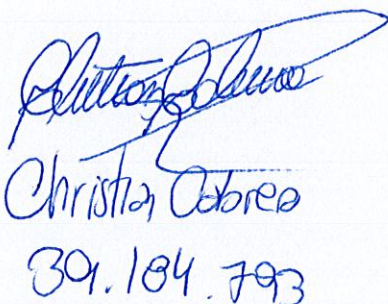 Christian Cabrera
39.184.793